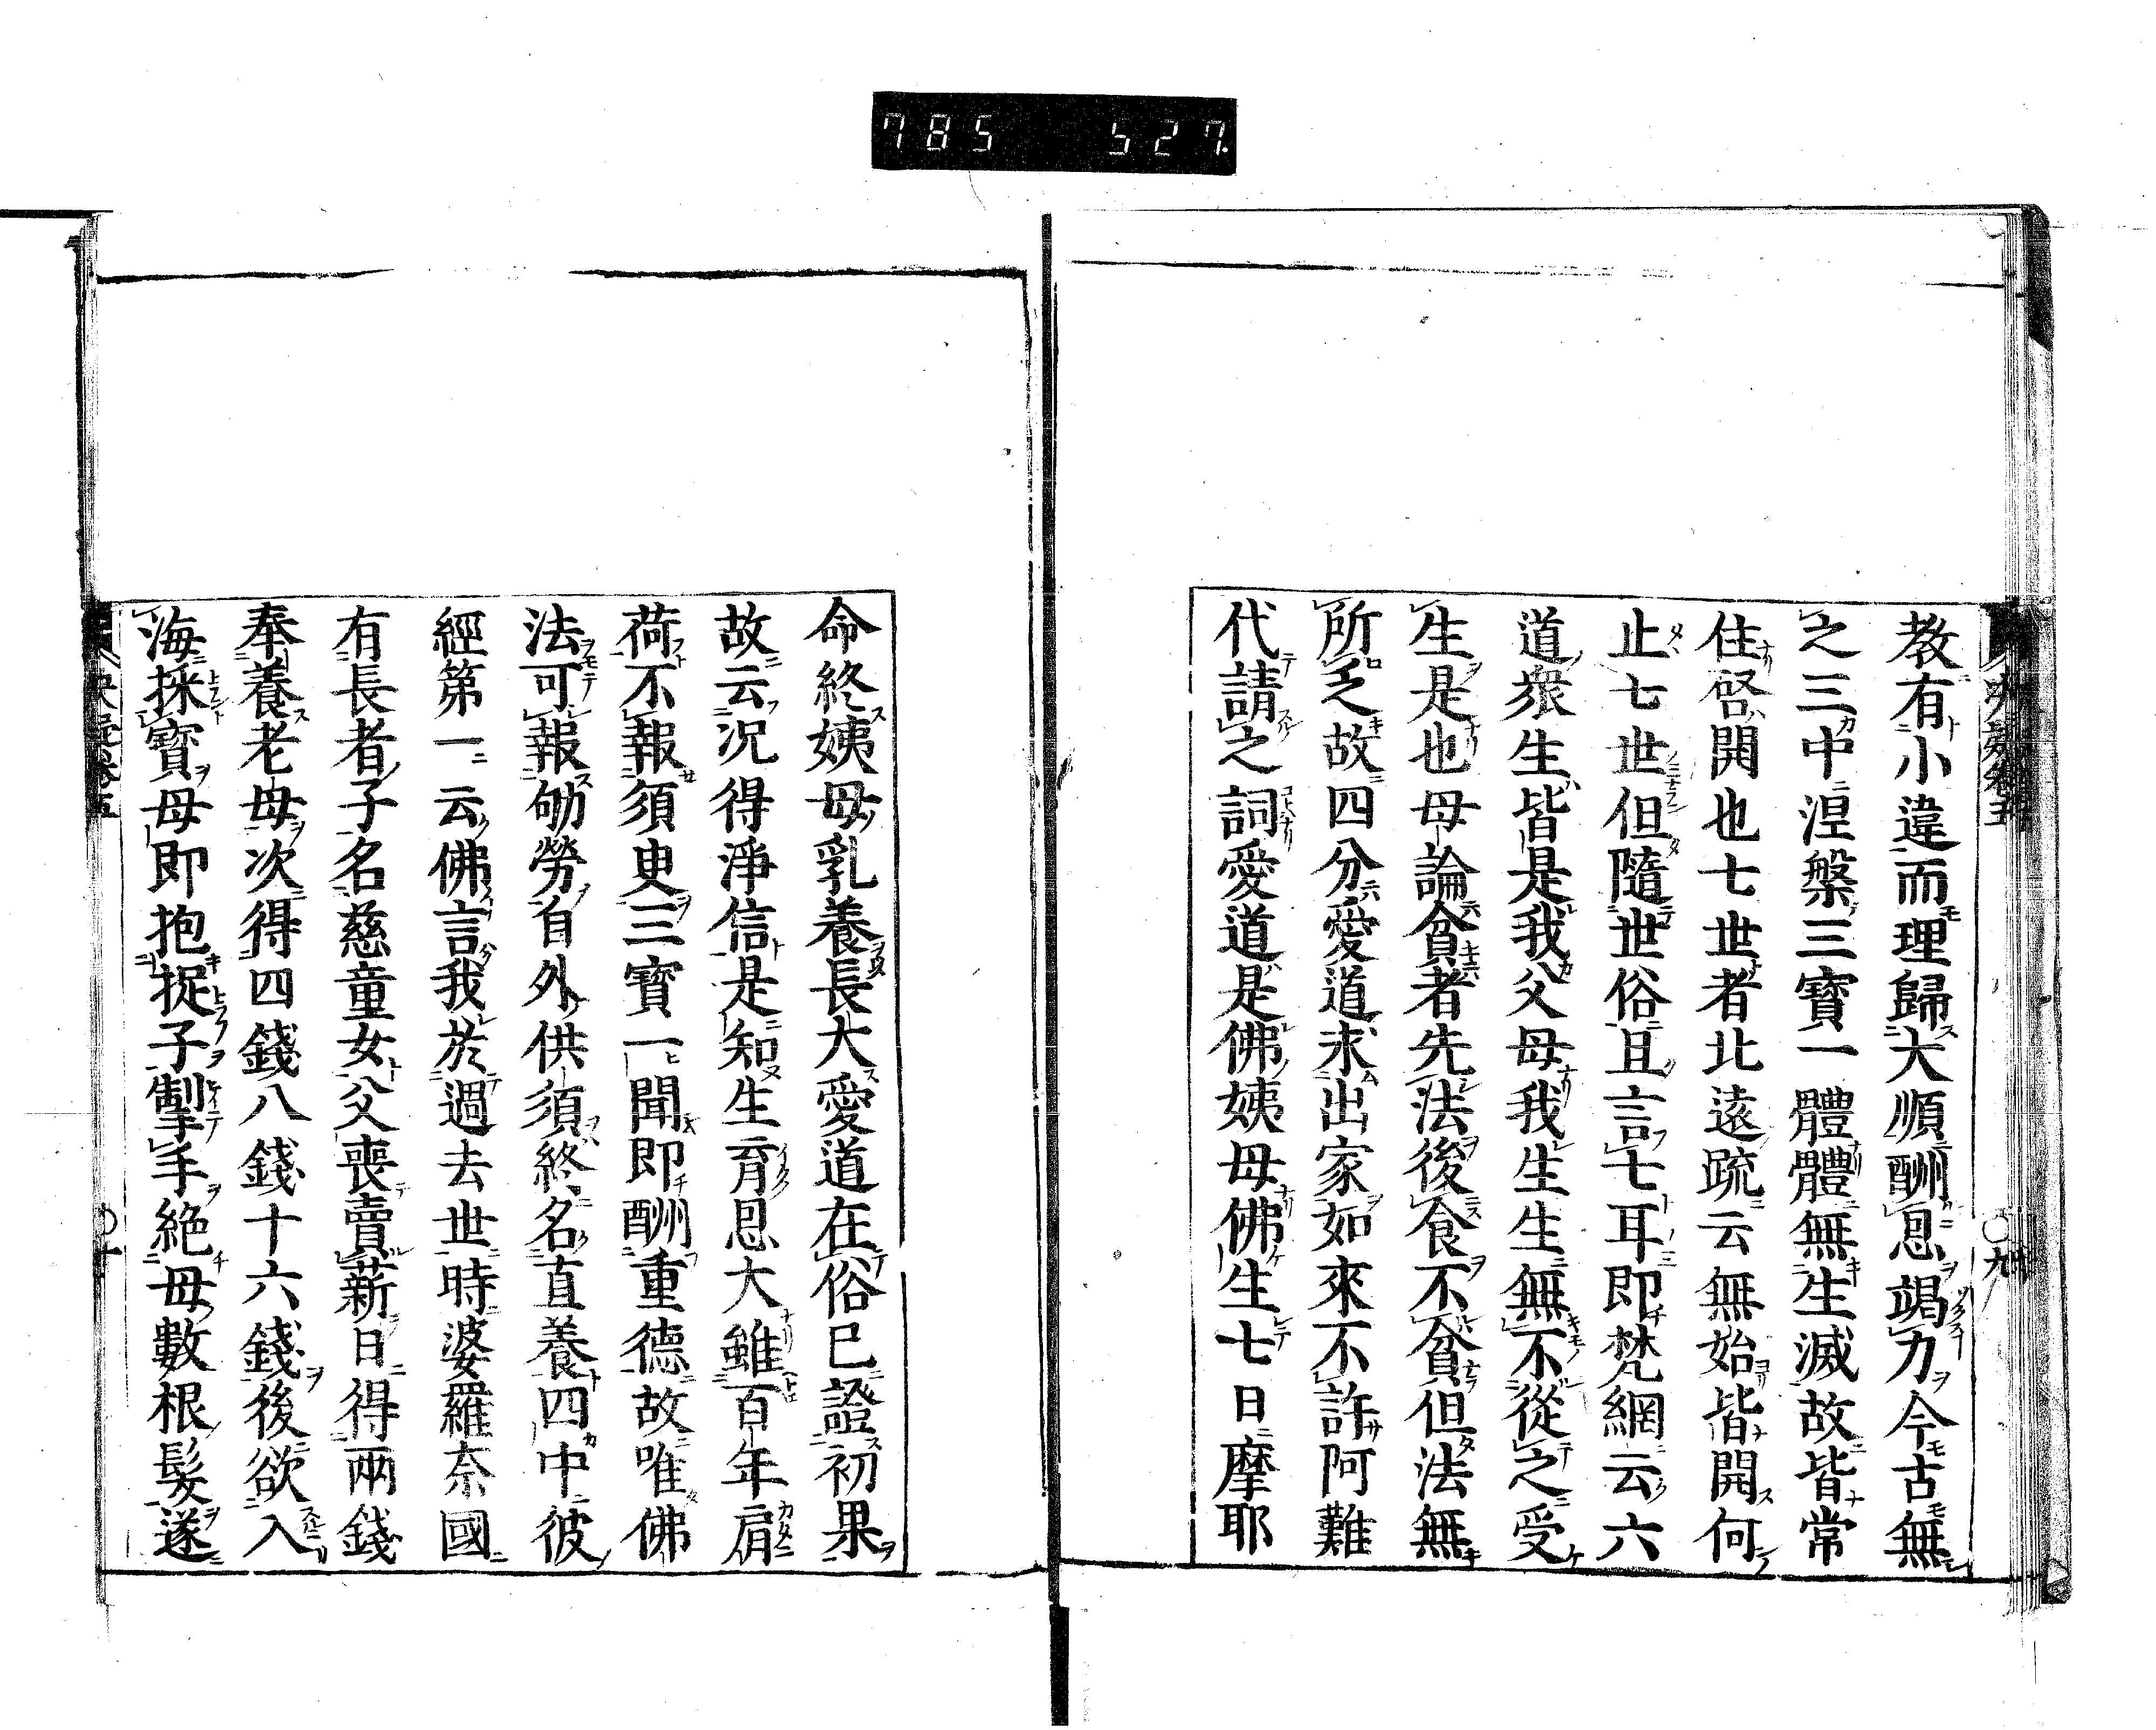 785 527.
教有小違而理歸大順酬恩竭力今古無
之三中涅槃三寶一體體無生滅故皆常
住啓開也七世者北遠疏云無始皆開何
止七世但隨世俗且言七耳即梵網云六
道衆生皆是我父母我生生無不從之受
生是也母論貧者先法後食不貧但法無
所乏故四分愛道求出家如來不許阿難
代請之詞愛道是佛姨母佛生七日摩耶
命終姨母乳養長大愛道在俗已證初果
故云況得淨信是知生育恩大雖百年肩
荷不報須更三寶一聞即酬重德故唯佛
法可報劬勞自外供須終名直養四中彼
經第一云佛言我於過去世時婆羅奈國
有長者子名慈童女父喪賣薪日得兩錢
奉養老母次得四錢八錢十六錢後欲入
海採寶母即抱捉子掣手絕母數根髮遂